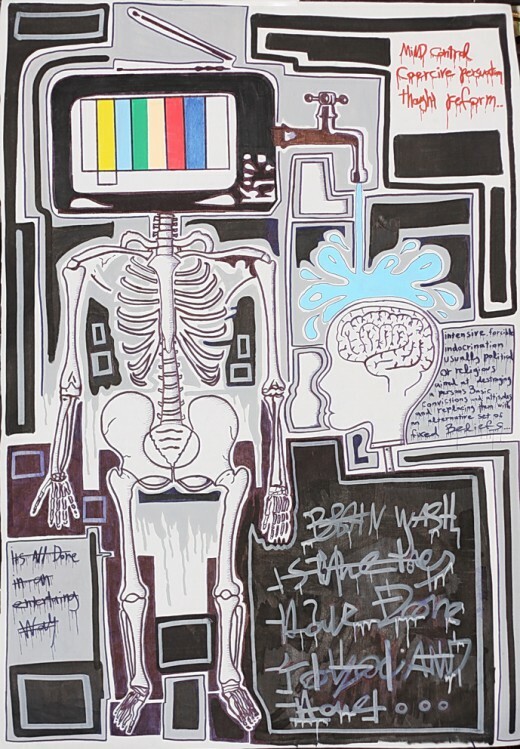 Mind Control
Coercive persuation
thought reform...
intensive forcible
indocrination
usually political
or religious
aimed at destroying
a persons Basic
Convictions and attitudes
and replacing them with
an alternative set of
fixed Beliefs...
BRAIN WASH
is whAt they
HAve Done
to
its All Done
in an
emerging
WAy